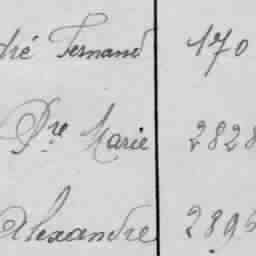 dré Fernand 170
Dre Marie 2828
Alexandre 2896